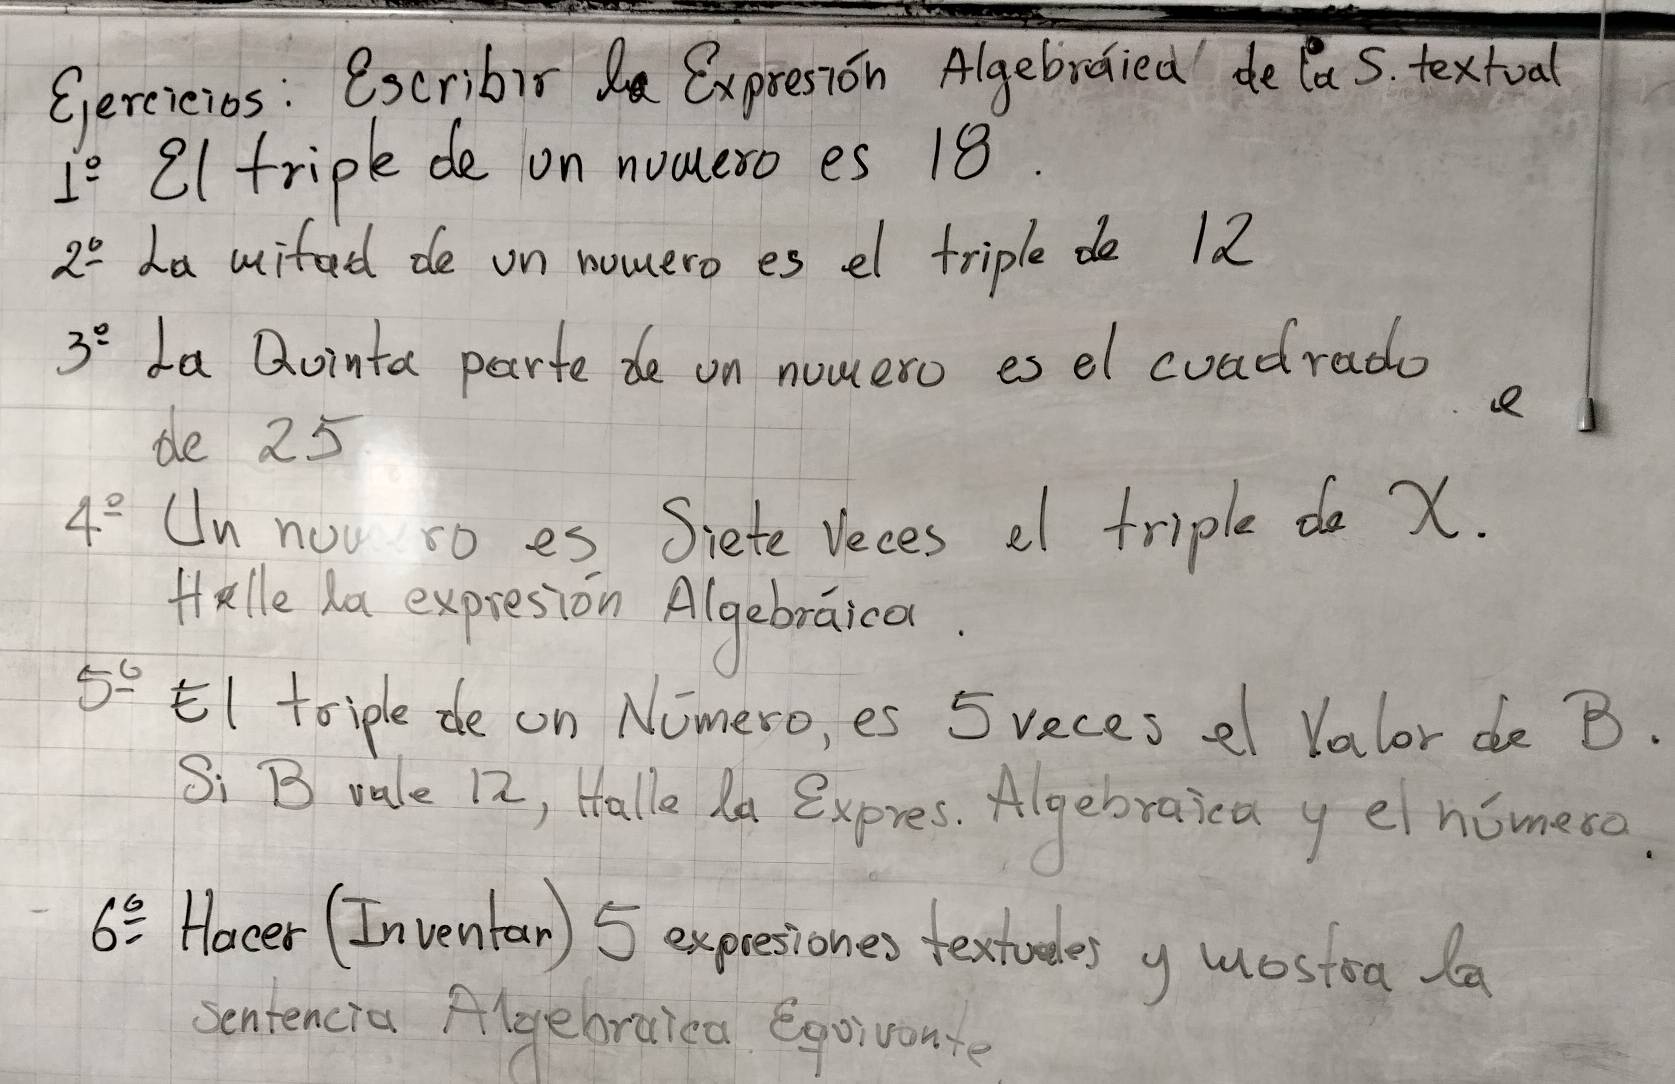 Ejercicios: Escribir la Expresión Algebráica de la S. textual
1º El triple de un numero es 18.
2º La mitad de un numero es el triple de 12
3º La Quinta parte de un numero es el cuadrado
e
de 25
4º Un numero es Siete veces el triple de X.
Halle la expresión Algebráica.
5º El triple de un Número, es 5 veces el Valor de B.
Si B vale 12, Halle la Expres. Algebraica y el número.
6º Hacer (Inventar) 5 expresiones textuales y mostra la
sentencia Algebraica Equivante